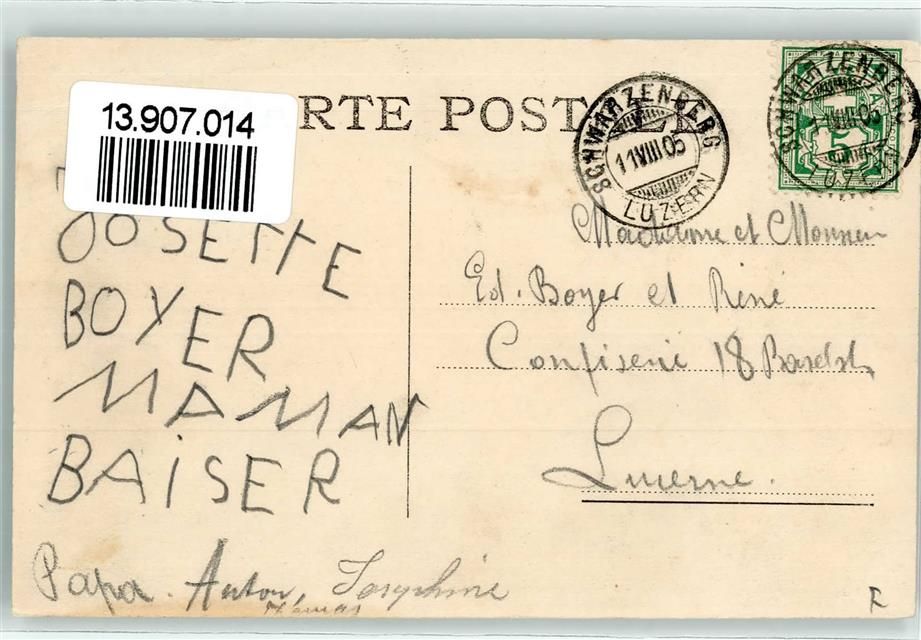 13.907.014
RTE POSTALE
SCHWARZENBERG
11 VIII 05
LUZERN
SCHWARZENBERG
11 VIII 05
LUZERN
5
JOSETTE
BOYER
MAMAN
BAISER
Papa. Anton, Josephine
Madame et Monsieur
Ed. Boyer et René
Confiserie 18
Lucerne.
F